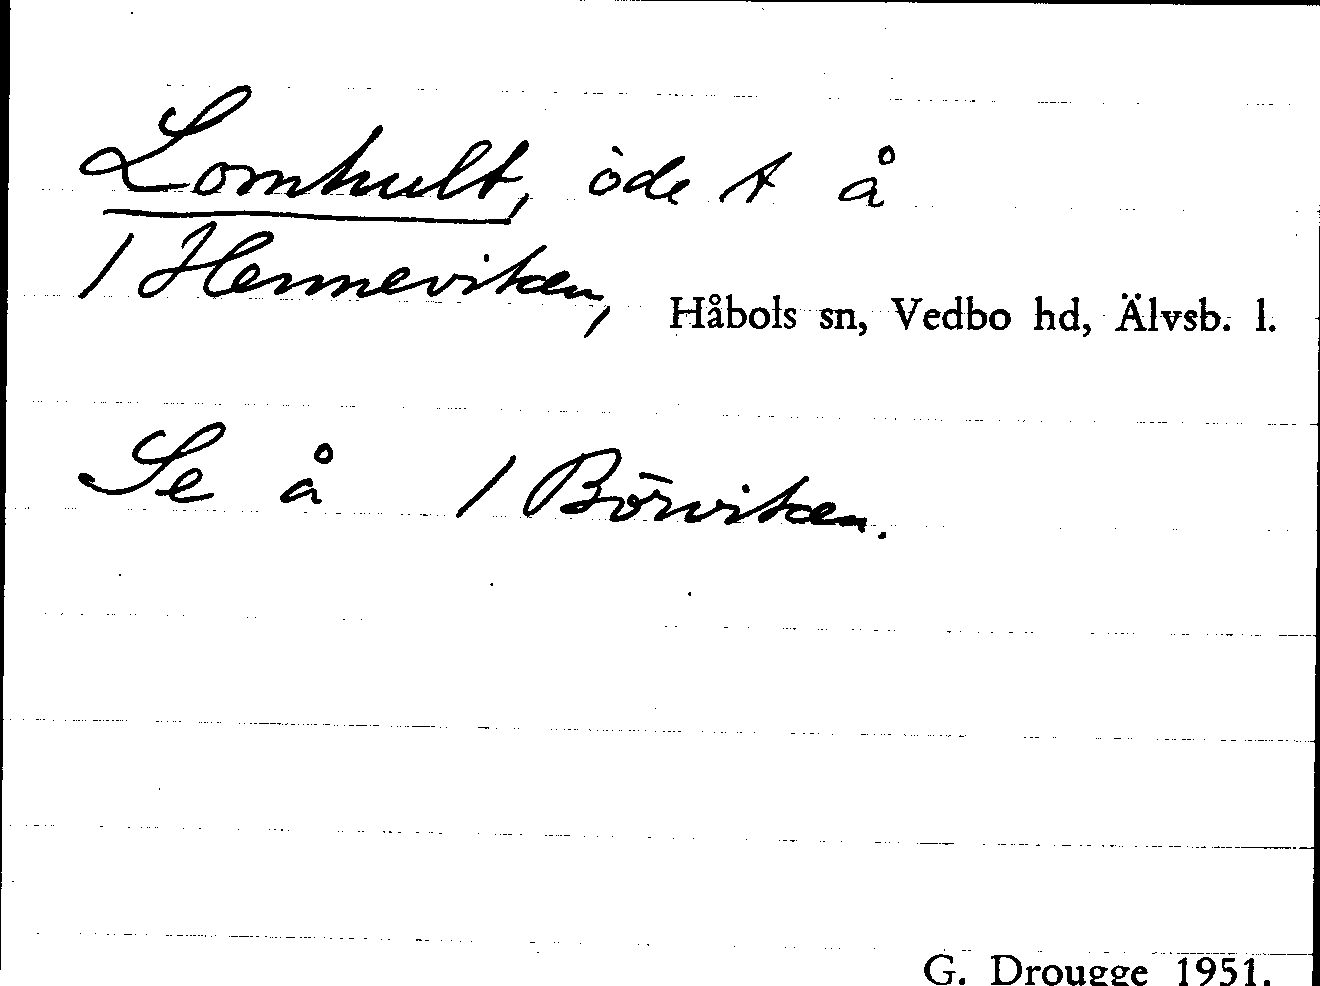 Lomhult, öde t å
/ Henneviken, Håbols sn, Vedbo hd, Älvsb. l.
Se å / Börviken.
G. Drougge 1951.